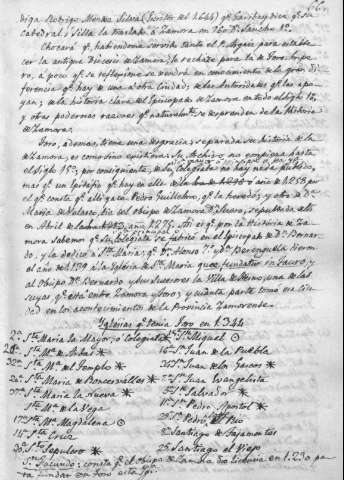 diga Rodrigo Mendez Silva (Escritor del 1644) qe
catedral, i Silla la traslado á Zamora en D. Sancho 1º.
Chocará qe habiendome servido tanto del P. para estable
cer la antigua Diócesis de Zamora, lo rechaze para la de Toro. Empe
ro, á poco qe se reflexione se vendrá en conocimiento de la gran di
ferencia qe hay de una á otra Ciudad; de las Autoridades qe las apo
yan; de la historia clara del Episcopado de Zamora en todo el siglo 12,
y otras poderosas razones qe naturalmte se desprenden de la Historia
de Zamora.
Toro, además, tiene una desgracia; separada su historia de la
de Zamora, es como sino existiera. Su Archivo no empieza hasta
el Siglo 15º; por consiguiente, su Colegiata no hay nada publico,
mas qe un Epitafio qe hay en ella de la año de 1258
el qe consta qe allí yace Pedro Guillelmo, qe la heredó; y otro de Dª
Maria de Velasco, tia del Obispo de Zamora D. Suero, sepultada alli
en Abril de 1275. Asi es qe por la Historia de Za
mora Sabemos qe su Colegiata se fabricó en el principado de D. Bernar
do, y la dedicó a Sta Maria; qe D. Alonso 7º y Dª Berenguela dieron
al año de 1139 á la Iglesia de Sta Maria quae fundatur in Tauro, y
al Obispo D. Bernardo y sus Sucesores la Villa de Fresno, una de las
suyas, qe está entre Zamora y Toro; y cuánta parte tomó esa Ciu
dad en los acontecimientos de la Provincia Zamorense.
Iglesias qe tenia Toro en 1344
Sta Maria la Mayor, o Colegiata
Sta Mª de Arbas
Sta Mª del Templo
Sta Maria de Roncesvalles
Sta Maria la Nueva
Sta Mª de la Vega
Sta Mª Magdalena
Sta Cruz
Sto Sepulcro
Sn Miguel
Sn Juan de la Puebla
Sn Juan de los Gascos
Sn Juan Evangelista
Sn Salvador
Sn Pedro Apostol
Sn Pedro del Pico
Santiago de Tajamontes
Santiago el Viejo
Sn Facundo: consta qe el Obispo de Zamora dio licencia en 1230 pa
ra fundar en Toro esta Iga.